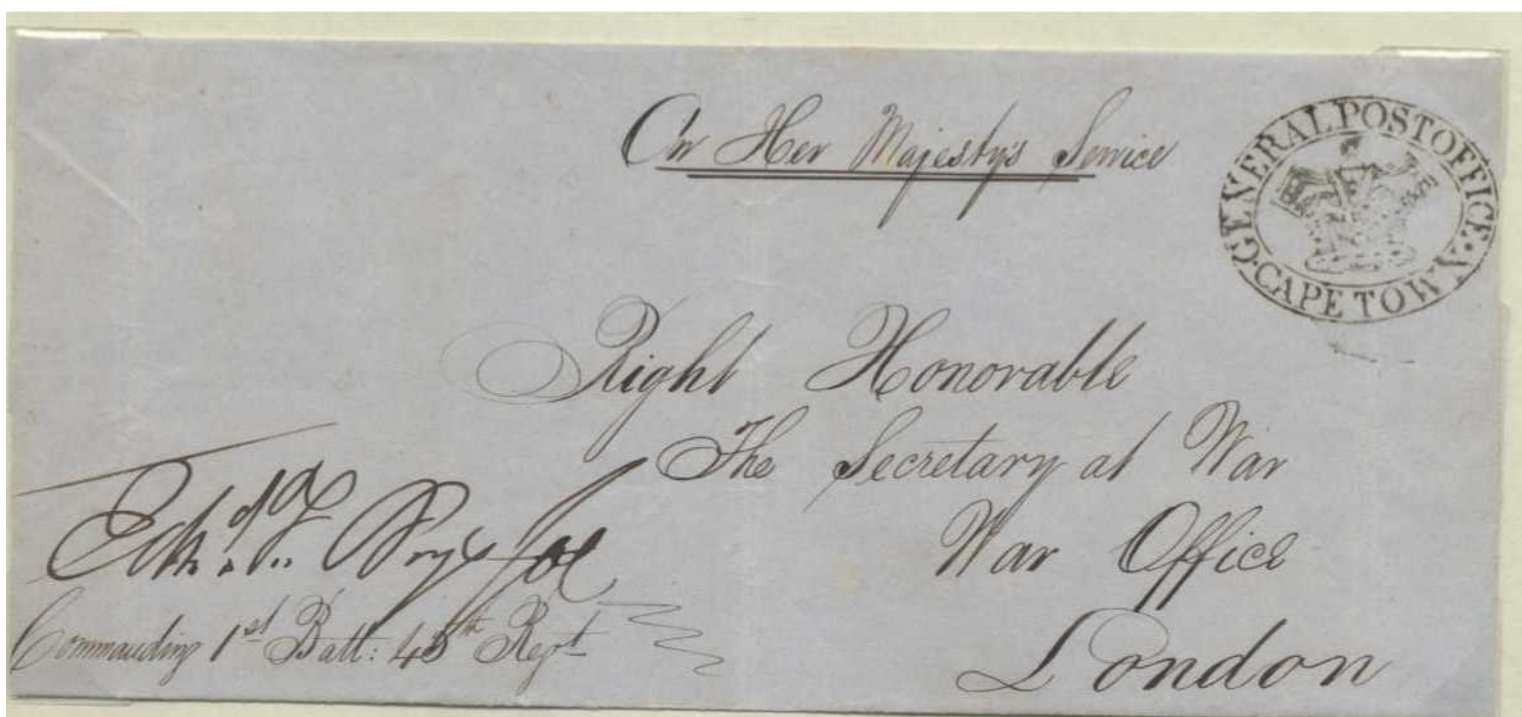 On Her Majesty's Service
GENERAL POST OFFICE
CAPE TOWN
Right Honorable
The Secretary at War
War Office
London
Commanding 1st Batt: 45th Regt